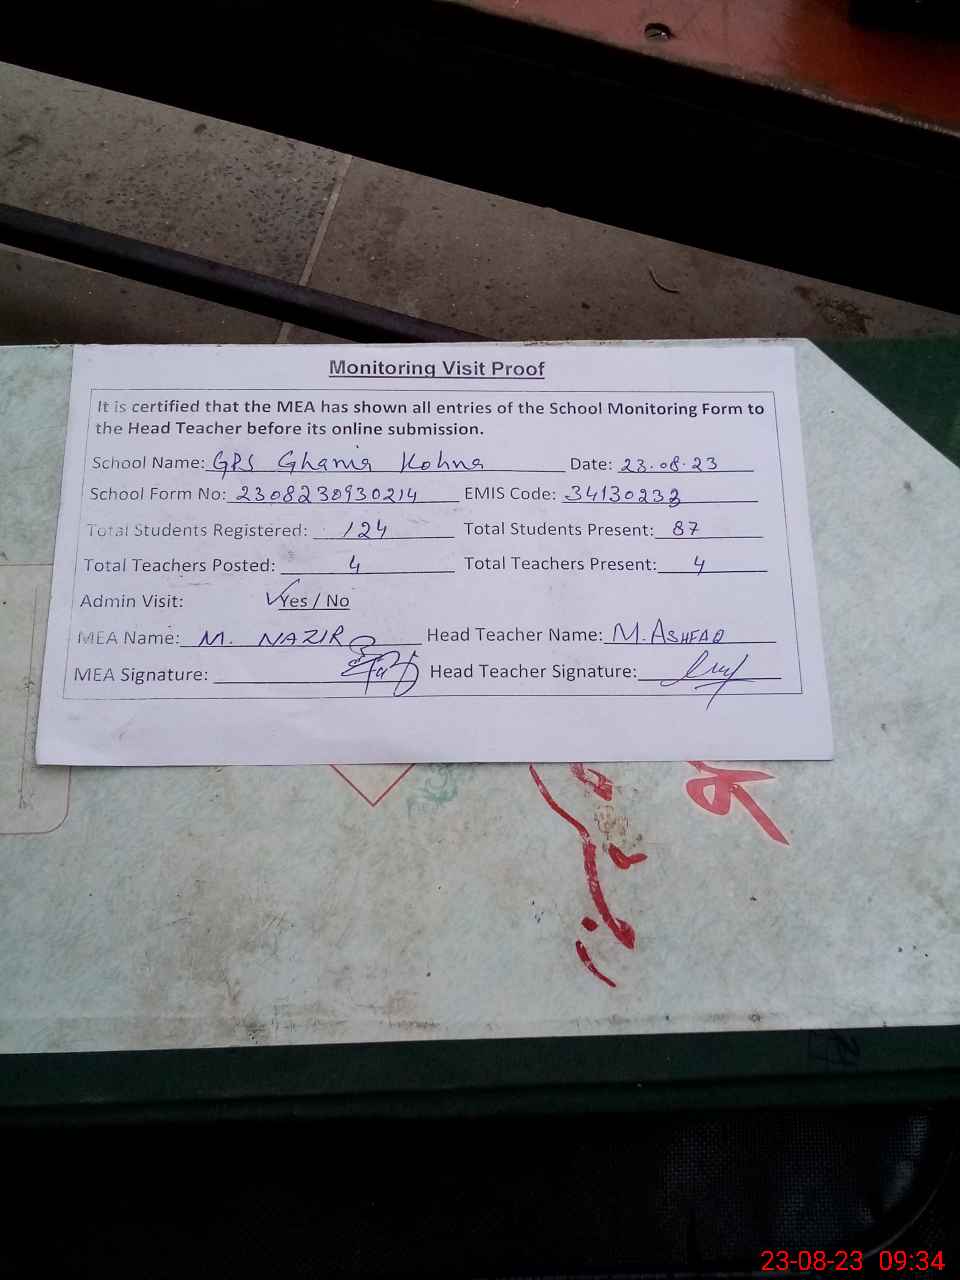 Monitoring Visit Proof
It is certified that the MEA has shown all entries of the School Monitoring Form to
the Head Teacher before its online submission.
School Name: GPS Ghania Kohna Date: 23.08.23
School Form No: 2308230930214 EMIS Code: 34130233
Total Students Registered: 124 Total Students Present: 87
Total Teachers Posted: 4 Total Teachers Present: 4
Admin Visit: ✓Yes / No
MEA Name: M. NAZIR Head Teacher Name: M. ASHFAQ
MEA Signature: Head Teacher Signature:
23-08-23 09:34